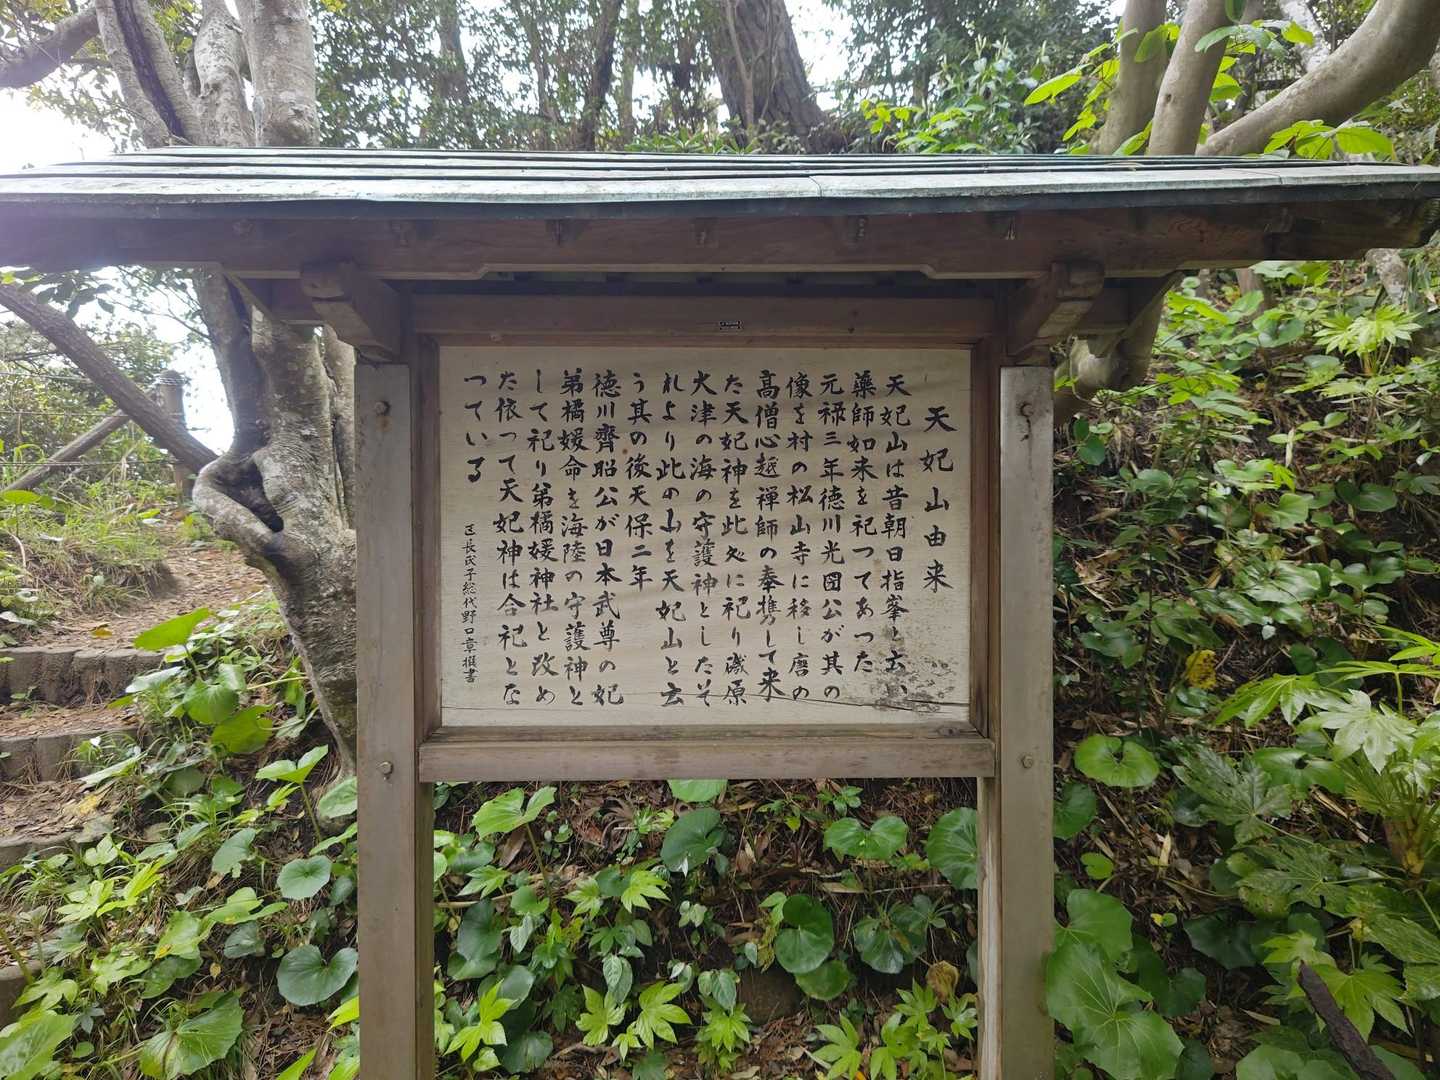 天妃山由来
天妃山は昔朝日指峯と云い
藥師如来を祀つてあつた
元禄三年徳川光圀公が其の
像を村の松山寺に移し唐の
高僧心越禅師の奉携して来
た天妃神を此処に祀り磯原
大津の海の守護神としたそ
れより此の山を天妃山と云
う其の後天保二年
徳川齊昭公が日本武尊の妃
弟橘媛命を海陸の守護神と
して祀り弟橘媛神社と改め
た依つて天妃神は合祀とな
つている
区長氏子総代野口章撰書